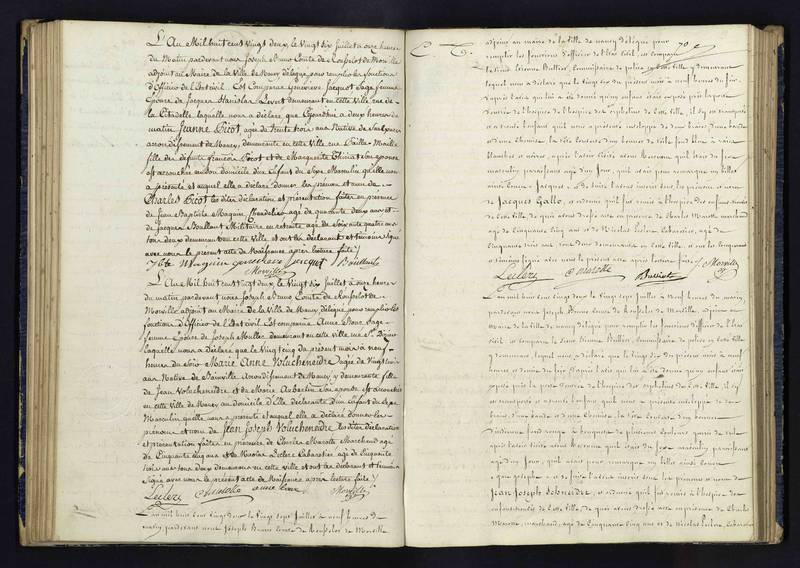 L'An Mil huit cent Vingt deux, le Vingt Six Juillet à onze heures
du Matin pardevant nous Joseph Bruno Comte de Rousselot de Morville
adjoint au Maire de la Ville de Nancy délégué pour remplir les fonctions
d'Officier de l'Etat Civil. Est Comparue Geneviève Jacquot Sage femme
Epouse de Jacques Stanislas demeurant en cette Ville rue de
la Citadelle laquelle nous a déclaré que Cejourd'hui à deux heures du
matin Jeanne Picot agée de trente trois ans Native de
arrondissement de Nancy, demeurante en cette Ville rue Paille Maille
fille des défunts François Picot et de Marguerite son épouse
est accouchée en son domicile d'un Enfant du Sexe Masculin qu'elle nous
a présenté et auquel elle a déclaré donner les prénom et nom de
Charles Picot les dites déclaration et présentation faites en présence
de Jean Baptiste Maguin Cordelier agé de quarante deux ans et
de Jacques Boullant Militaire en retraite agé de Soixante quatre ans
tous deux demeurant en cette Ville et ont les déclarant et témoins Signé
avec nous le présent acte de Naissance après lecture faite
Maguin genevieve jacquot Boullant
Morville
L'An Mil huit Cent Vingt deux, le Vingt Six Juillet à onze heures
du matin pardevant nous Joseph Bruno Comte de Rousselot de
Morville adjoint au Maire de la Ville de Nancy délégué pour remplir les
fonctions d'Officier de l'Etat Civil est comparue Anne Sage
femme Epouse de Joseph Muller demeurant en cette Ville rue St Dizier
Laquelle nous a déclaré que le Vingt cinq du présent mois à neuf
heures du Soir Marie Anne Volucheneidre agée de Vingt trois
ans Native de Rainville Arrondissement de Nancy y demeurante fille
de Jean Volucheneidre et de Marie Aubertin Son épouse est accouchée
en cette Ville de Nancy au domicile d'Elle déclarante d'un Enfant du Sexe
Masculin qu'elle nous a présenté et auquel elle a déclaré donner les
prénoms et nom de Jean Joseph Voluchencidre les dites déclaration
et présentation faites en présence de Charles Marotte Marchand agé
de Cinquante cinq ans et de Nicolas Leclerc Cabaretier agé de Cinquante
trois ans tous deux demeurans en cette ville et ont les déclarant et témoins
Signé avec nous le présent acte de Naissance après lecture faite
Leclerc Marotte Morville
L'an mil huit cent vingt deux le Vingt sept Juillet à neuf heures du
matin pardevant nous Joseph Bruno comte de Rousselot de Morville
70
adjoint au maire de la Ville de nancy délégué pour
remplir les fonctions d'officier de l'état civil, est comparu
le sieur Etienne Bullier, Commissaire de police en cette Ville y demeurant
lequel nous a déclaré que le vingt six du présent mois à neuf heures du soir
d'après l'avis qui lui a été donné qu'un enfant était exposé près la porte
d'entrée de l'hospice des orphelins de cette Ville, il s'y est transporté
et a trouvé l'enfant qu'il nous a présenté enveloppé de
d'une Chemise, la tête couverte d'un bonnet de toile fond bleu à raies
blanches et noires, après l'avoir visité avons reconnu qu'il était du Sexe
masculin, paraissant agé d'un Jour, qu'il avait pour remarque un billet
ainsi conçu : Jacques. De suite l'avons inscrit sous les prénom et nom
de Jacques Gallo, et ordonné qu'il fut remis à l'hospice des enfants trouvés
de cette Ville, de quoi avons dressé acte en présence de Charles Marotte marchand
agé de Cinquante cinq ans et de Nicolas Leclerc Cabaretier, agé de
Cinquante trois ans tous deux demeurans en cette Ville et ont les comparant
et témoins signé avec nous le présent acte après lecture faite Morville
Leclerc Marotte Bulliert
L'an mil huit cent vingt deux le Vingt sept Juillet à neuf heures du matin,
pardevant nous Joseph Bruno comte de Rousselot de Morville, adjoint au
Maire de la Ville de nancy délégué pour remplir les fonctions d'officier de l'état
Civil, est comparu le Sieur Etienne Bullier, Commissaire de police en cette Ville
y demeurant, lequel nous a déclaré que le vingt six du présent mois à neuf
heures et demie du Soir d'après l'avis qui lui a été donné qu'un enfant était
exposé près la porte d'entrée de l'hospice des orphelins de cette Ville, il s'y
est transporté et a trouvé l'enfant qu'il nous a présenté enveloppé de
d'une Chemise, la tête couverte d'un bonnet
d'indienne fond rouge
après l'avoir visité avons reconnu qu'il était du Sexe masculin paraissant
agé d'un Jour, qu'il avait pour remarque un billet ainsi conçu
et de suite l'avons inscrit sous les prénoms et nom de
Jean Joseph Schneider, et ordonné qu'il fut remis à l'hospice des
enfants trouvés de cette Ville, de quoi avons dressé acte en présence de Charles
Marotte, marchand, agé de Cinquante cinq ans et de Nicolas Leclerc, Cabaretier